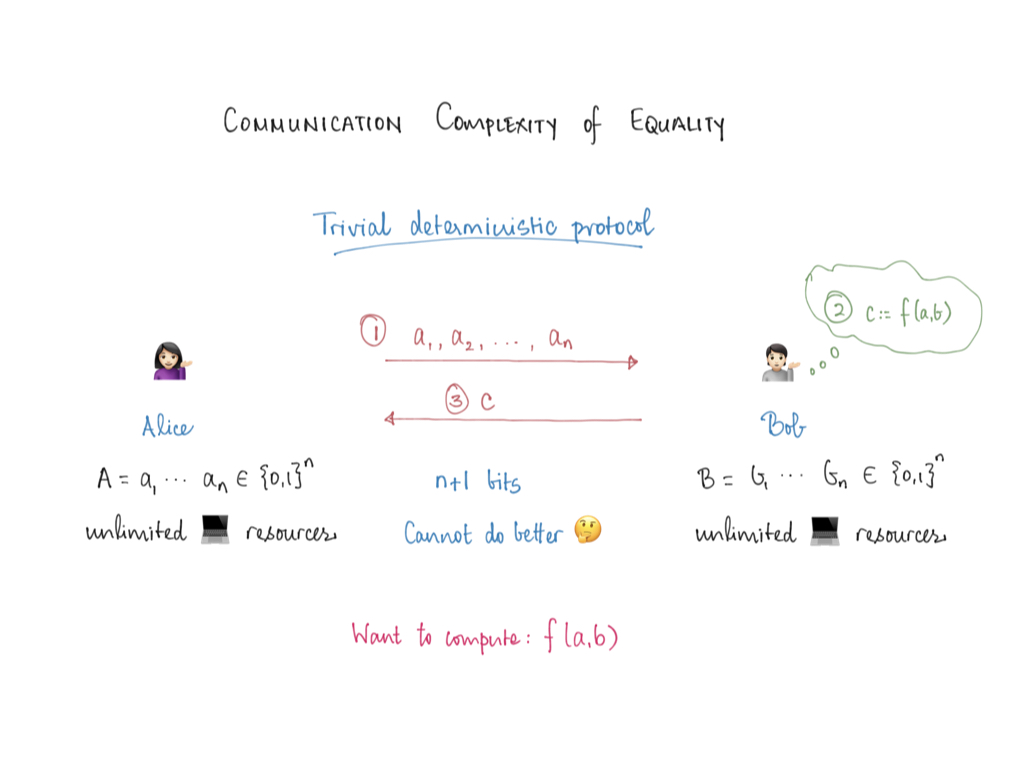 COMMUNICATION COMPLEXITY of EQUALITY
Trivial deterministic protocol
② c:= f(a,b)
① a₁, a₂, ..., aₙ
③ c
Alice
Bob
A = a₁ ... aₙ ∈ {0,1}ⁿ
n+1 bits
B = b₁ ... bₙ ∈ {0,1}ⁿ
unlimited 💻 resources
Cannot do better 🤔
unlimited 💻 resources
Want to compute: f(a,b)